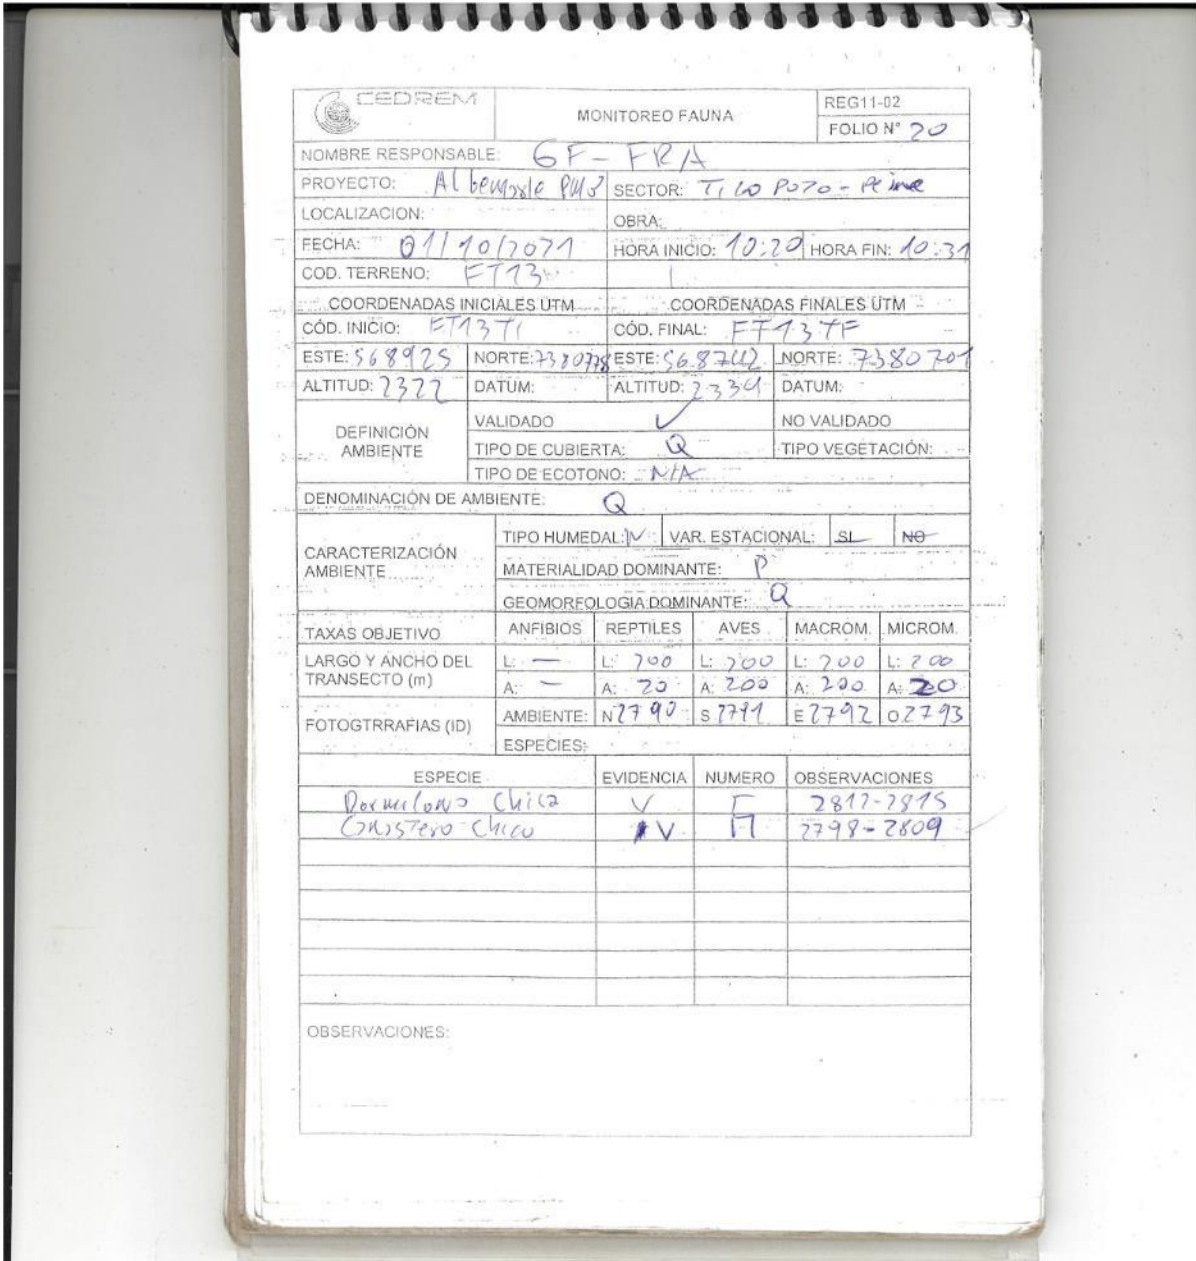 CEDREM
MONITOREO FAUNA
REG11-02
FOLIO N° 20
NOMBRE RESPONSABLE: GF - FRA
PROYECTO: Albemarle SECTOR: Tilo Pozo - Peine
LOCALIZACION: OBRA:
FECHA: 01/10/2021 HORA INICIO: 10:20 HORA FIN: 10:31
COD. TERRENO: FT13
COORDENADAS INICIALES UTM COORDENADAS FINALES UTM
CÓD. INICIO: FT13TI CÓD. FINAL: FT13TF
ESTE: 568925 NORTE: 7380778 ESTE: NORTE: 7380701
ALTITUD: 2322 DATUM: ALTITUD: DATUM:
DEFINICIÓN AMBIENTE
VALIDADO ✓ NO VALIDADO
TIPO DE CUBIERTA: Q TIPO VEGETACIÓN:
TIPO DE ECOTONO: N/A
DENOMINACIÓN DE AMBIENTE: Q
CARACTERIZACIÓN AMBIENTE
TIPO HUMEDAL: N VAR. ESTACIONAL: SI NO
MATERIALIDAD DOMINANTE: P
GEOMORFOLOGIA DOMINANTE: Q
TAXAS OBJETIVO ANFIBIOS REPTILES AVES MACROM. MICROM.
LARGO Y ANCHO DEL TRANSECTO (m)
L: — L: 200 L: 200 L: 200 L: 200
A: — A: 20 A: 200 A: 200 A: 20
FOTOGTRRAFIAS (ID)
AMBIENTE: N 2790 S 2791 E 2792 O 2793
ESPECIES:
ESPECIE EVIDENCIA NUMERO OBSERVACIONES
Dormilona Chica V 2812-2815
Canastero Chico V 2798-2809
OBSERVACIONES: